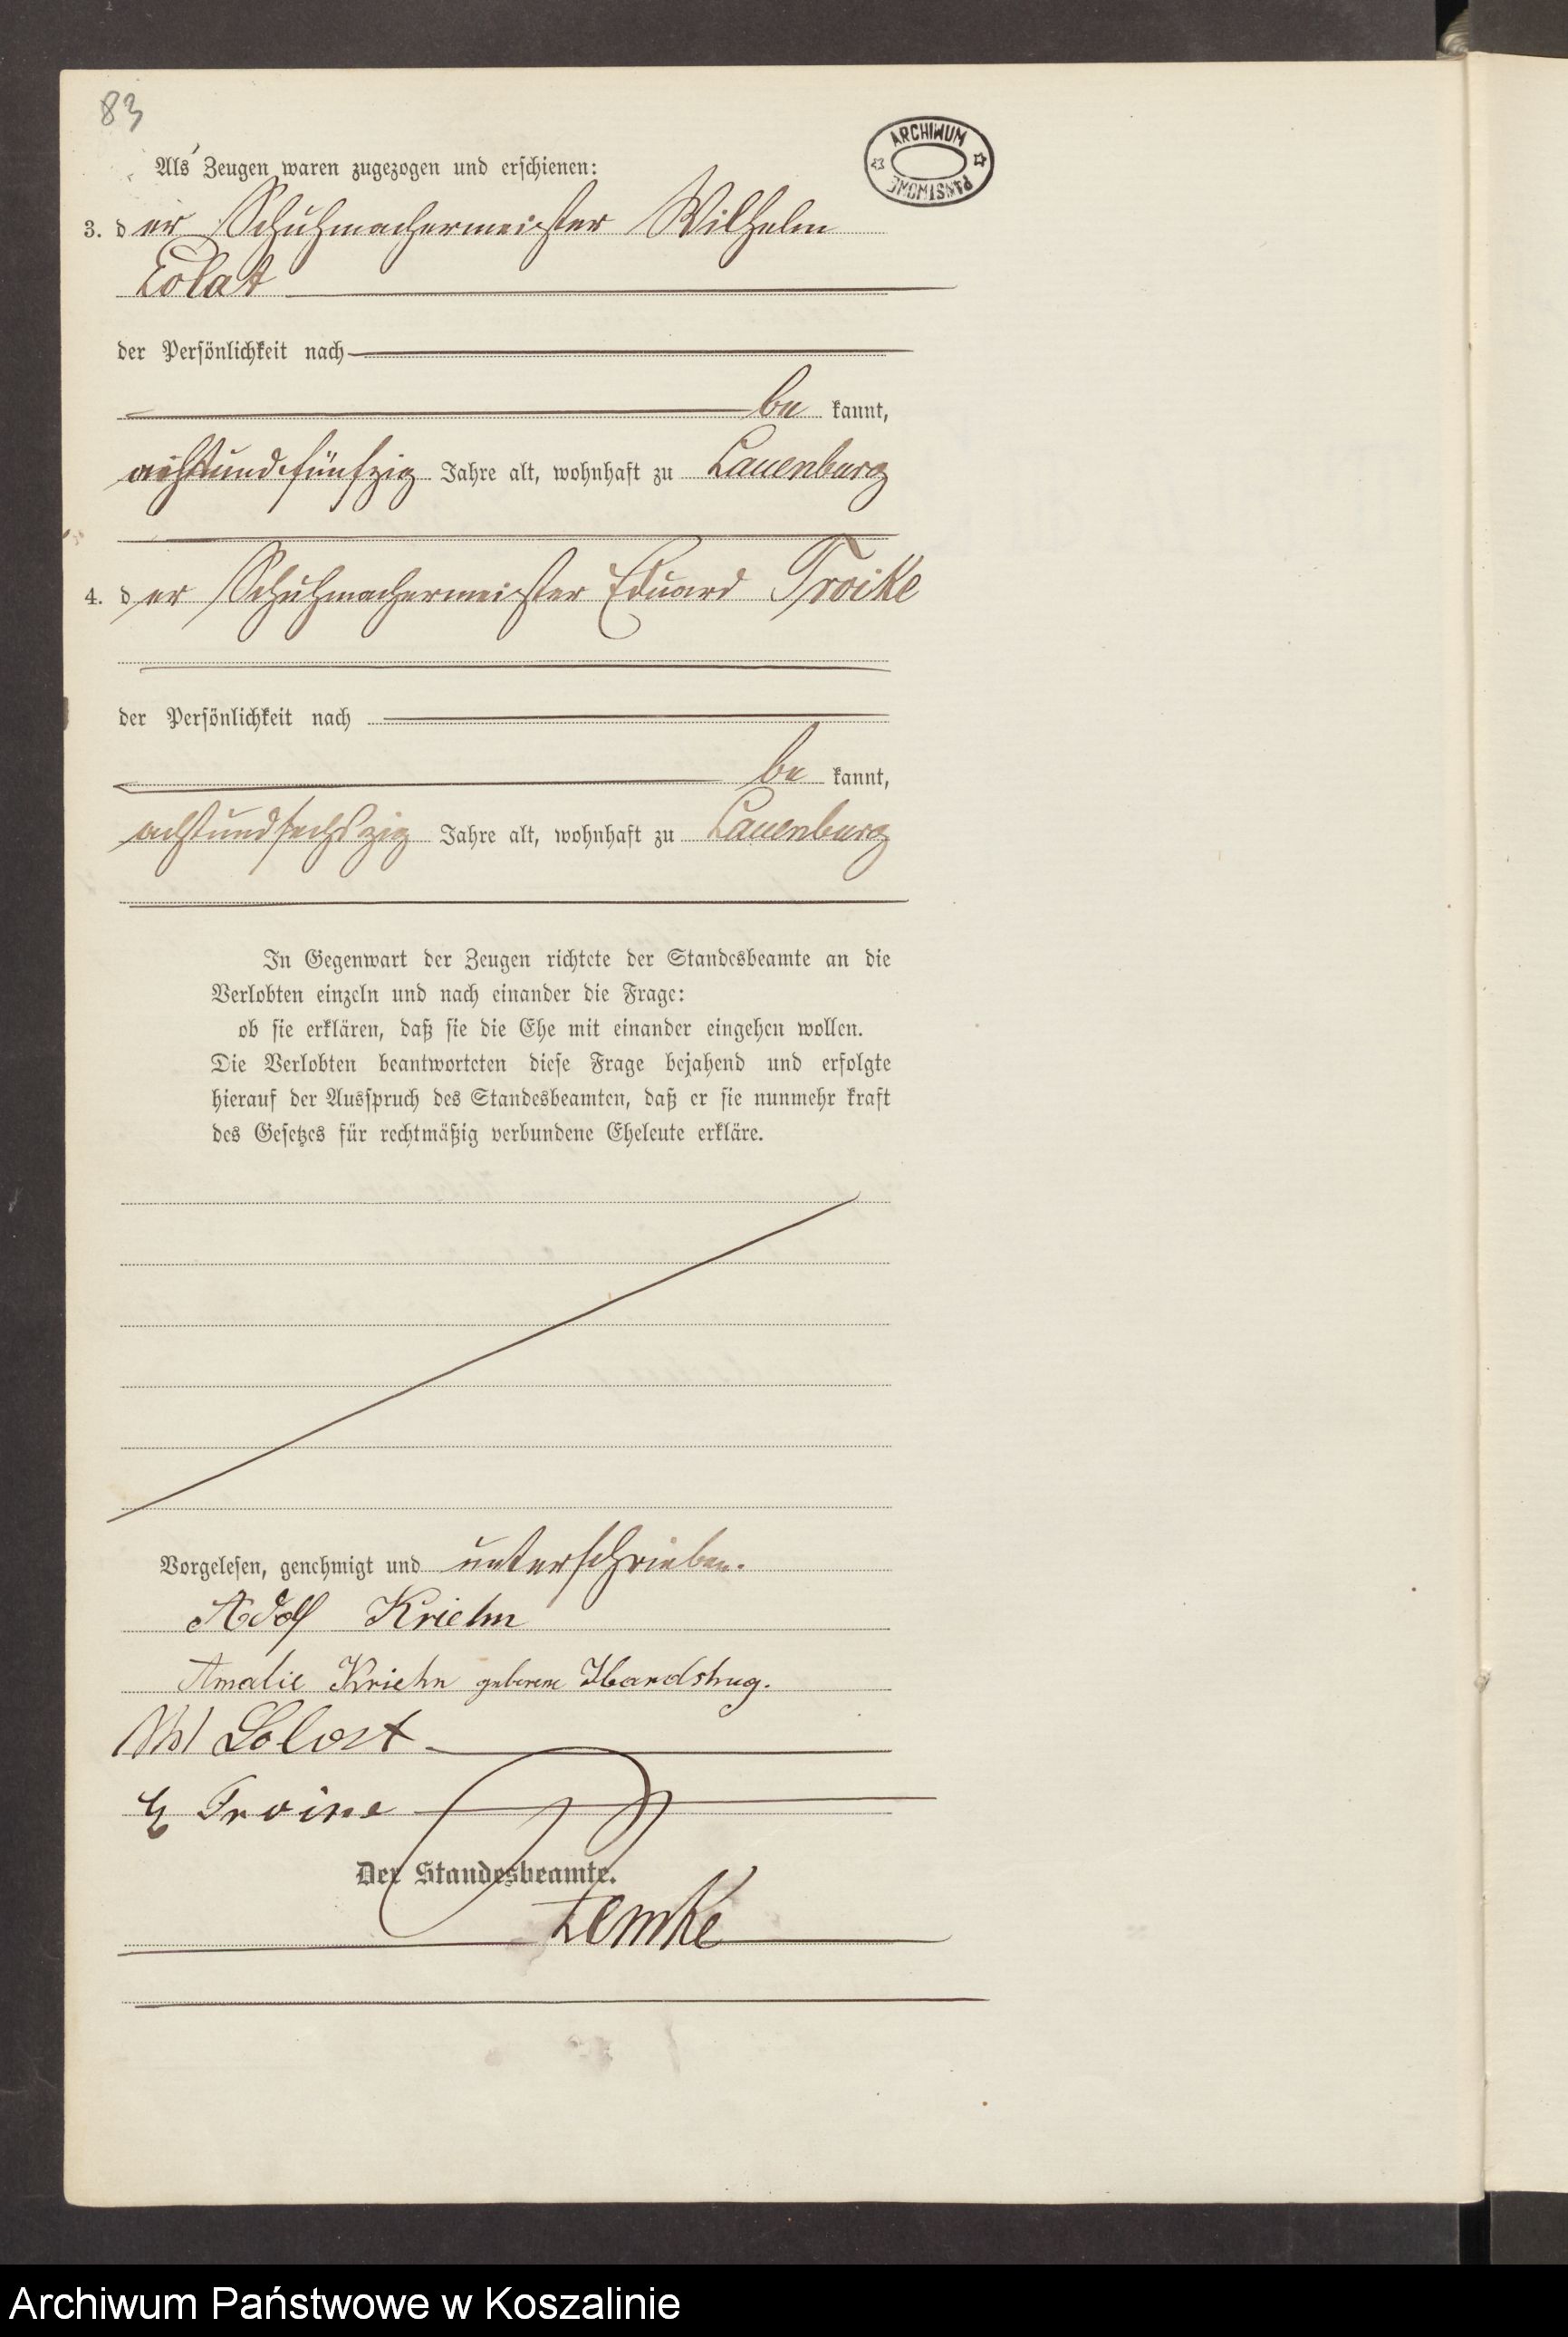 83
ARCHIWUM PAŃSTWOWE
Als Zeugen waren zugezogen und erschienen:
3. der Schuhmachermeister Wilhelm
Lolat
der Persönlichkeit nach
be kannt,
achtundfünfzig Jahre alt, wohnhaft zu Lauenburg
4. der Schuhmachermeister Eduard Troike
der Persönlichkeit nach
be kannt,
achtundsechszig Jahre alt, wohnhaft zu Lauenburg
In Gegenwart der Zeugen richtete der Standesbeamte an die
Verlobten einzeln und nach einander die Frage:
ob sie erklären, daß sie die Ehe mit einander eingehen wollen.
Die Verlobten beantworteten diese Frage bejahend und erfolgte
hierauf der Ausspruch des Standesbeamten, daß er sie nunmehr kraft
des Gesetzes für rechtmäßig verbundene Eheleute erkläre.
Vorgelesen, genehmigt und unterschrieben.
Adolf Kriehn
Amalie Kriehn geborene
E Troike
Der Standesbeamte.
Lemke
Archiwum Państwowe w Koszalinie